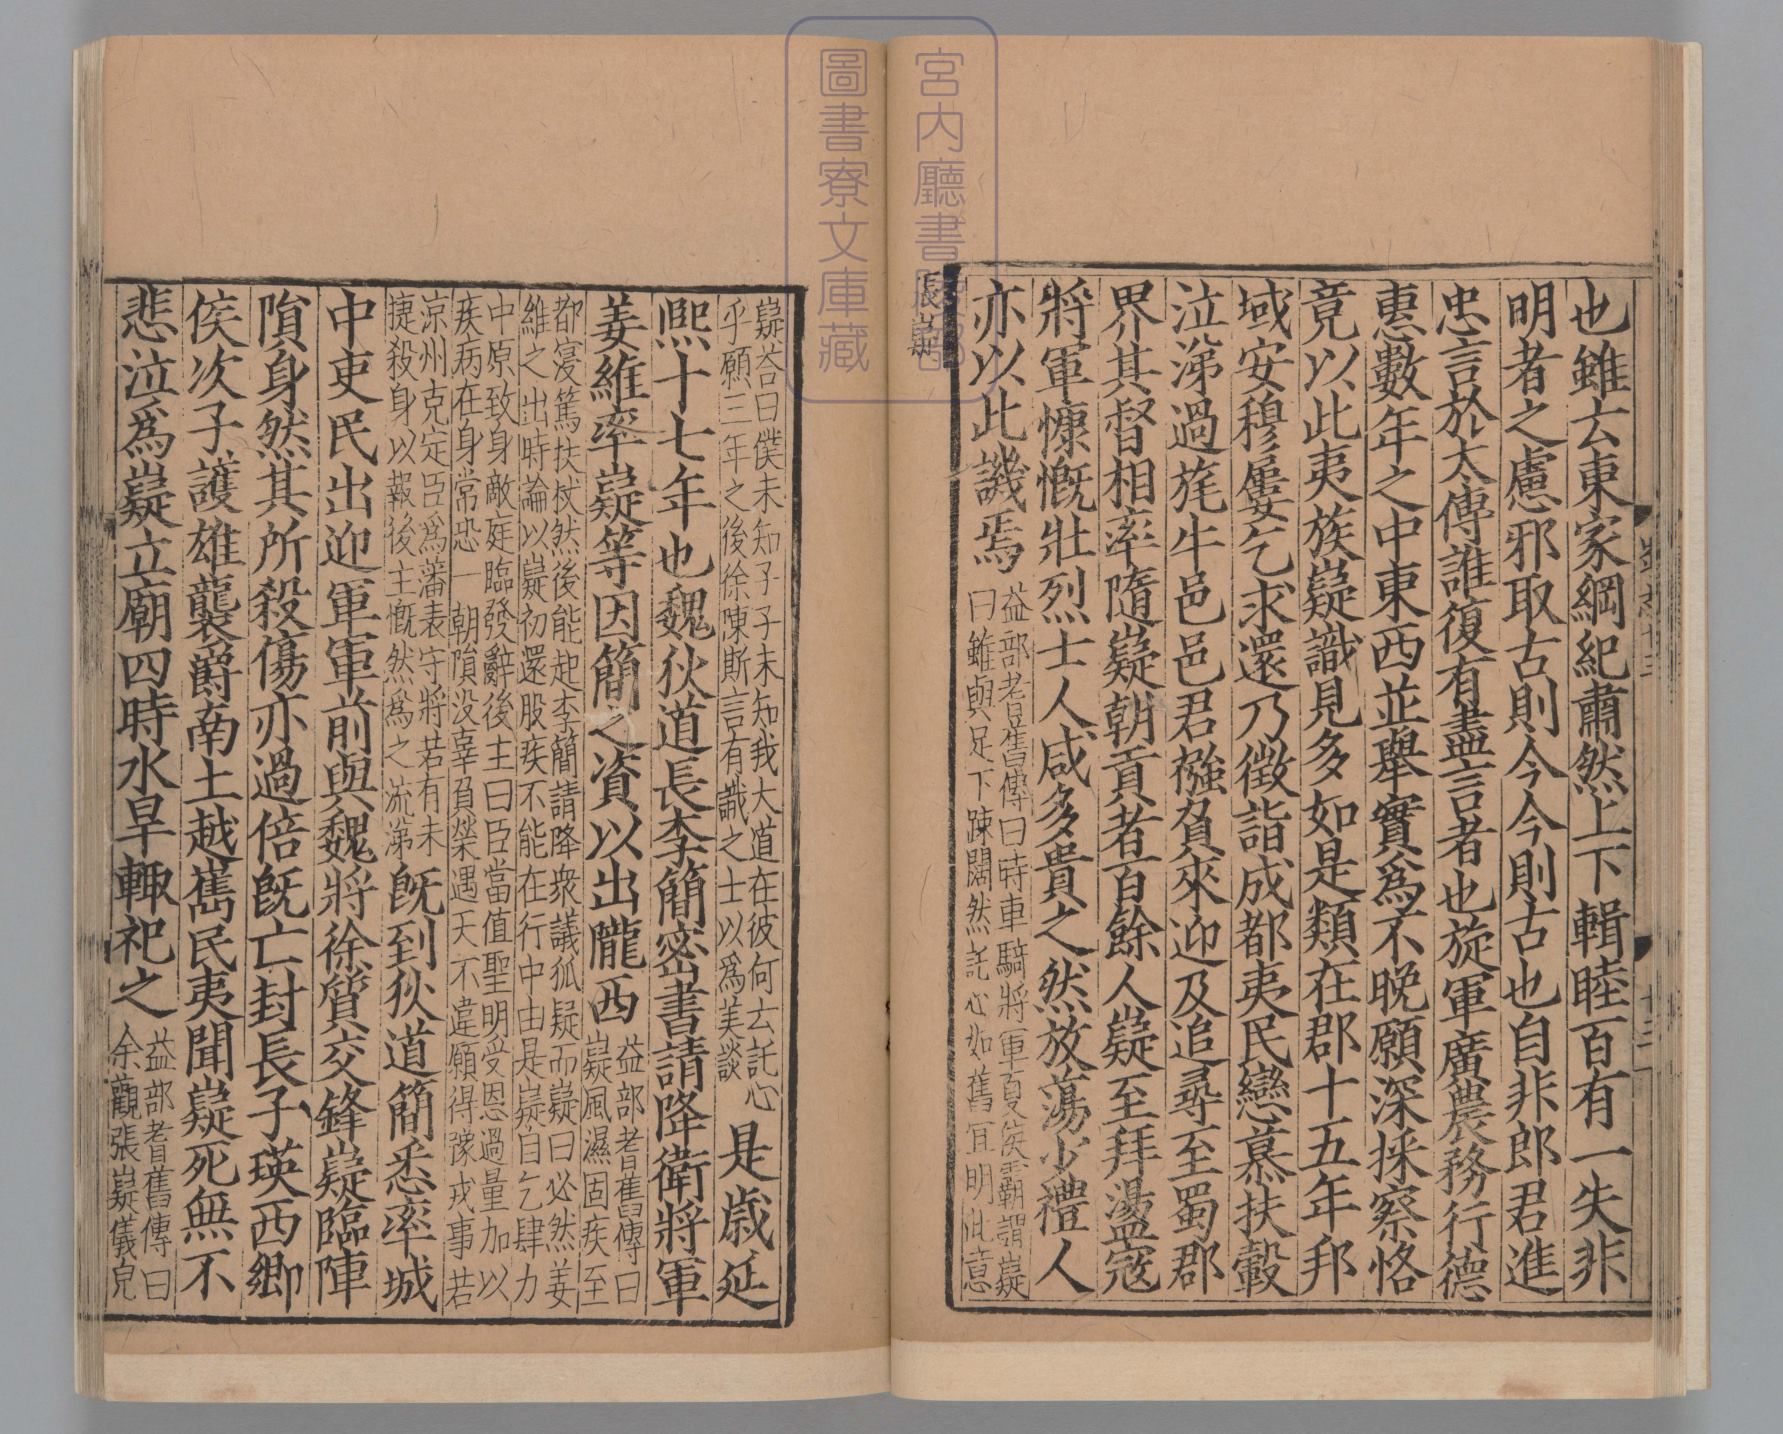 也雖云東家綱紀肅然上下輯睦百有一失非
明者之慮邪取古則今今則古也自非郎君進
忠言於太傅誰復有盡言者也旋軍廣農務行德
惠數年之中東西並舉實爲不晚願深採察恪
竟以此夷族嶷識見多如是類在郡十五年邦
域安穆屢乞求還乃徵詣成都夷民戀慕扶轂
泣涕過旄牛邑邑君襁負來迎及追尋至蜀郡
界其督相率隨嶷朝貢者百餘人嶷至拜盪寇
將軍慷慨壯烈士人咸多貴之然放蕩少禮人
亦以此譏焉
益部耆舊傳曰時車騎將軍夏侯霸謂嶷
曰雖與足下踈闊然託心如舊宜明此意
張嶷
嶷荅曰僕未知子子未知我大道在彼何去託心
乎願三年之後徐陳斯言有識之士以爲美談
是歲延
熙十七年也魏狄道長李簡密書請降衛將軍
姜維率嶷等因簡之資以出隴西
益部耆舊傳曰
嶷風濕固疾至
都寖篤扶杖然後能起李簡請降衆議狐疑而嶷曰必然姜
維之出時論以嶷初還股疾不能在行中由是嶷自乞肆力
中原致身敵庭臨發辭後主曰臣當值聖明受恩過量加以
疾病在身常恐一朝隕没辜負榮遇天不違願得豫戎事若
涼州克定臣爲藩表守將若有未
捷殺身以報後主慨然爲之流涕
旣到狄道簡悉率城
中吏民出迎軍軍前與魏將徐質交鋒嶷臨陣
隕身然其所殺傷亦過倍旣亡封長子瑛西鄉
侯次子護雄襲爵南土越嶲民夷聞嶷死無不
悲泣爲嶷立廟四時水旱輙祀之
益部耆舊傳曰
余觀張嶷儀皃
宮内廳書陵部
圖書寮文庫藏